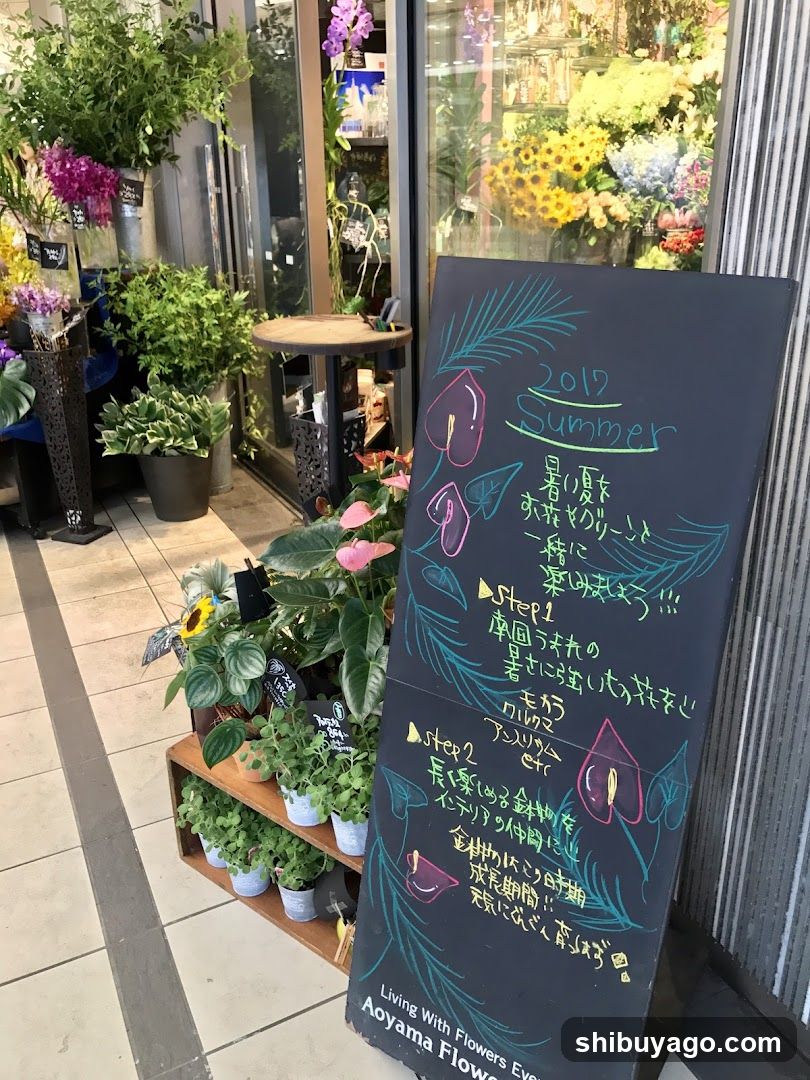 2017
Summer
暑い夏を
お花やグリーンと
一緒に
楽しみましょう!!!
▷step1
南国うまれの
暑さに強いお花をど
モカラ
クルクマ
アンスリウム
etc
▷step2
長く楽しめる鉢物を
インテリアの仲間に!!
鉢物はこの時期
成長期間!!
元気にぐんぐん育つはず!
Living With Flowers Eve
Aoyama Flowe
shibuyago.com